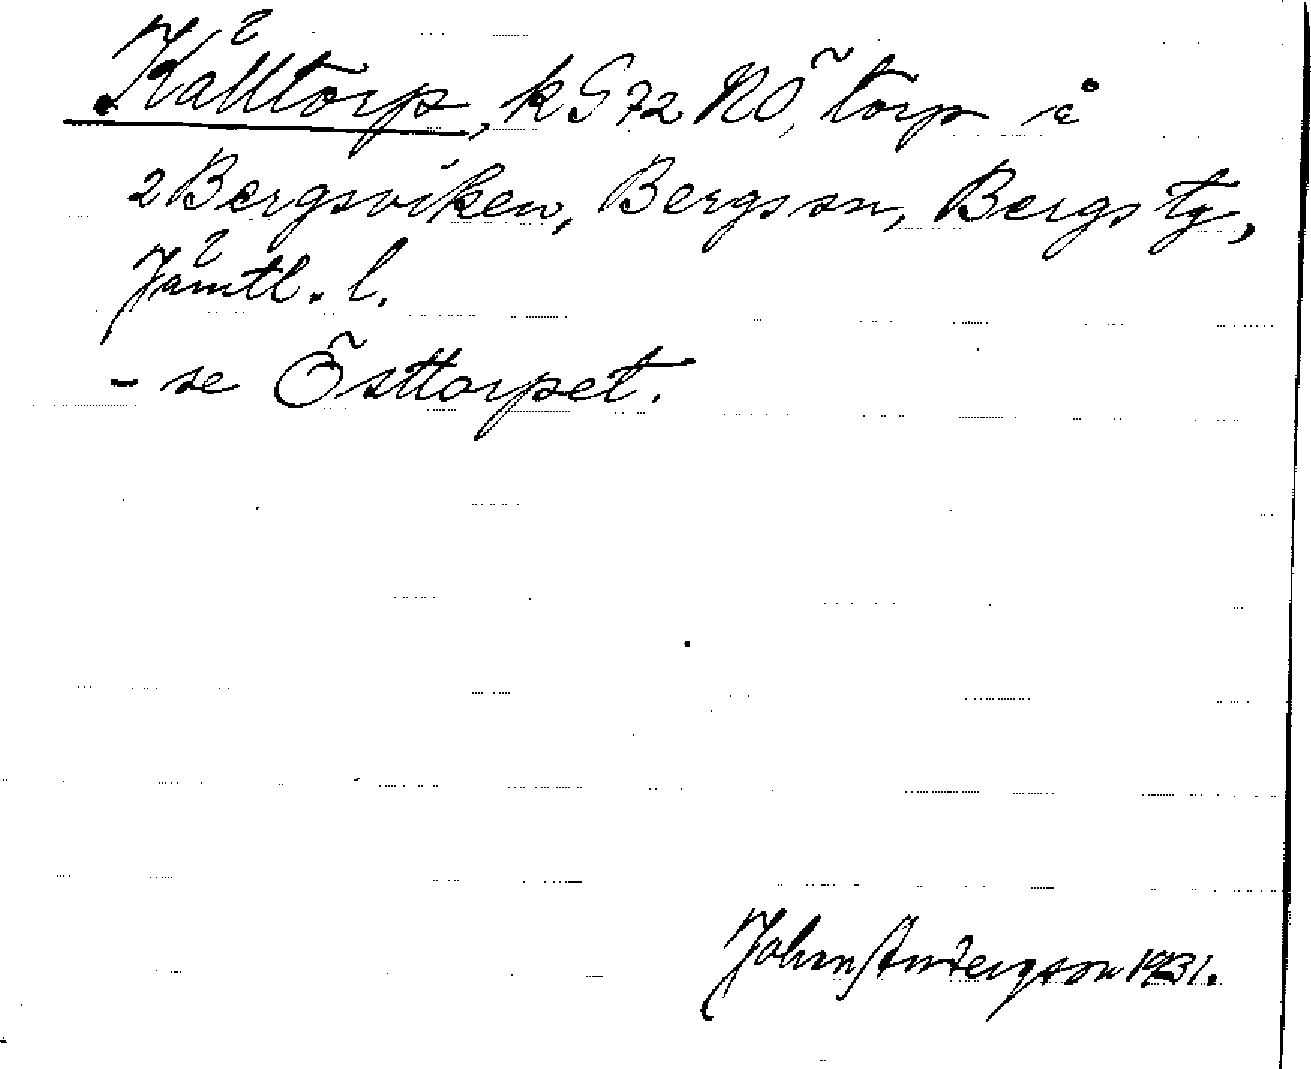 Källtorp, k G 72 NÖ, torp i
2 Bergsviken, Bergs sn, Bergs tg,
Jämtl. l.
- se Östtorpet.
John 1931.